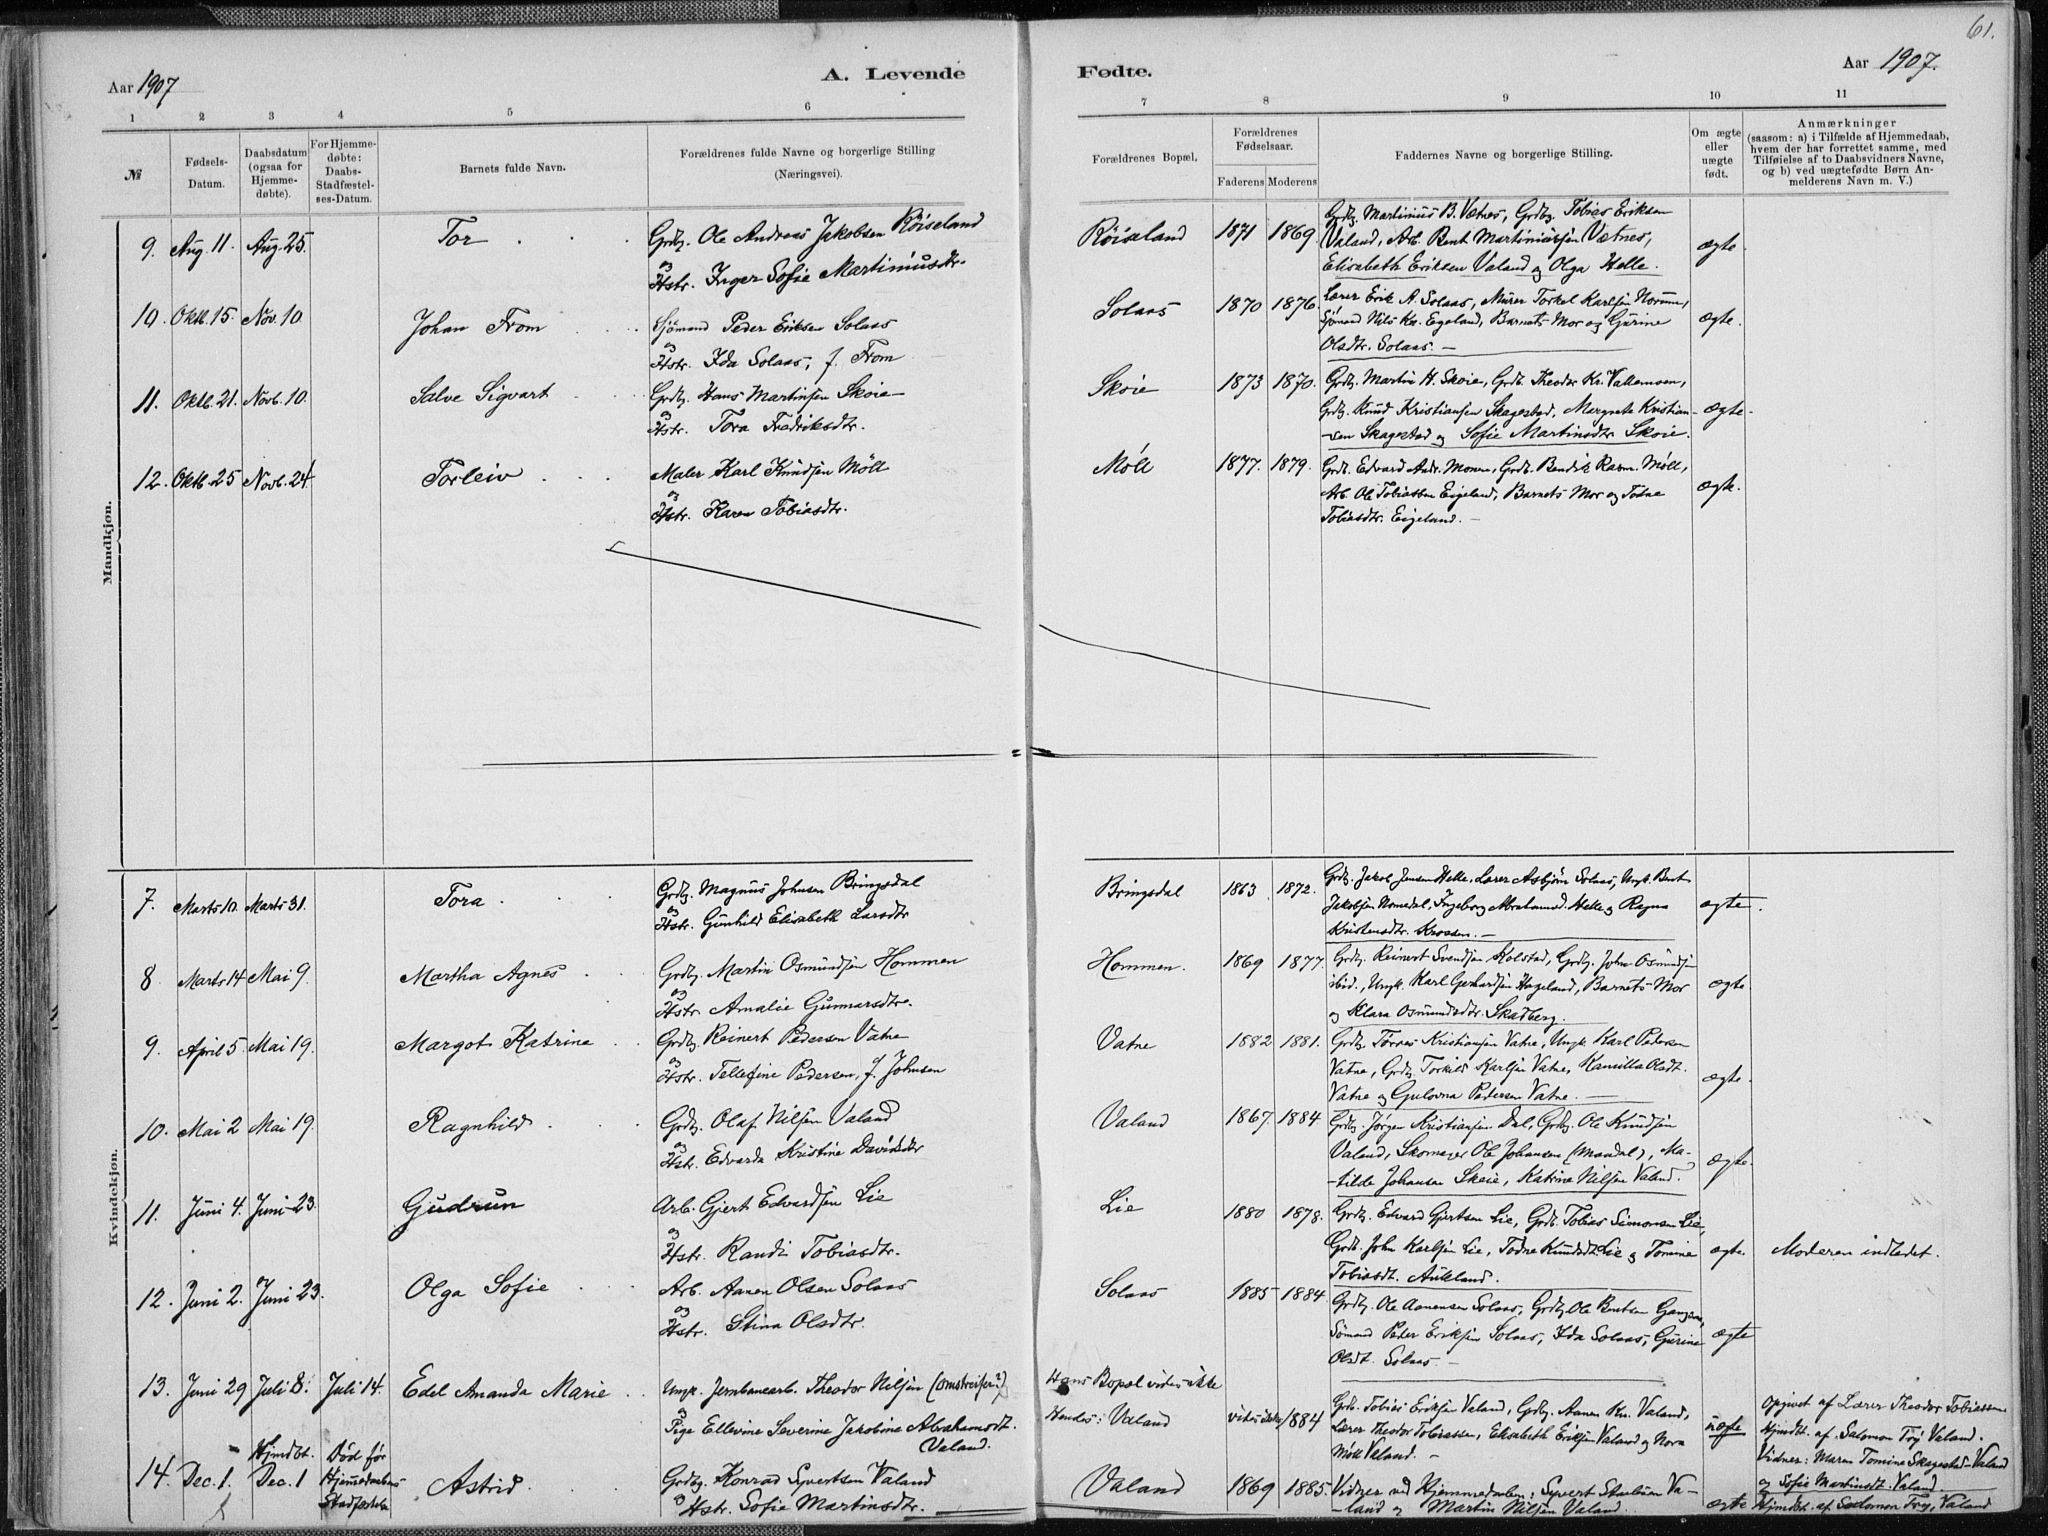 61.
Aar 1907
A. Levende
Fødte.
Aar 1907.
1 2 3 4 5 6 7 8 9 10 11
№
Fødsels-Datum.
Daabsdatum (ogsaa for Hjemme-døbte).
For Hjemme-døbte: Daabs-Stadfæstel-ses-Datum.
Barnets fulde Navn.
Forældrenes fulde Navne og borgerlige Stilling (Næringsvei).
Forældrenes Bopæl.
Forældrenes Fødselsaar.
Faderens Moderens
Faddernes Navne og borgerlige Stilling.
Om ægte eller uægte født.
Anmærkninger
(saasom: a) i Tilfælde af Hjemmedaab,
hvem der har forrettet samme, med
Tilføielse af to Daabsvidners Navne,
og b) ved uægtefødte Børn An-
melderens Navn m. V.)
Mandkjøn.
9. Aug. 11. Aug. 25. Tor
Grdbg. Ole Andreas Jakobsen Röiseland
og Hstr. Inger Sofie Martiniusdtr.
Röiseland 1871 1869.
Grdbg. Martinius B. Vætnes, Grdbg. Tobias Eriksen
Valand, Arb. Bent Martiniussen Vætnes,
Elisabeth Eriksen Valand og Olga Helle.
ægte.
10. Oktb. 15. Nov. 10. Johan From
Sjömand Peder Eriksen Solaas
og Hstr. Ida Solaas, f. From
Solaas 1870 1876.
Lærer Erik A. Solaas, Murer Torkel Karlsen Norum,
Sjömand Nils Kr. Egeland, Barnets Mor og Gurine
Olsdtr. Solaas. —
ægte.
11. Oktb. 21. Novb. 10. Salve Sigvart
Grdbg. Hans Martinsen Skoie
og Hstr. Tora Fredriksdtr.
Skoie 1873 1870.
Grdbg. Martin H. Skoie, Grdb. Theodor Kr. Vallemoen,
Grdbg. Knud Kristiansen Skagestad, Margrete Kristian-
-sen Skagestad og Sofie Martinsdtr. Skoie.
ægte
12. Oktb. 25 Novb. 24 Torleiv
Maler Karl Knudsen Möll
og Hstr. Karen Tobiasdtr.
Möll 1877. 1879.
Grdb. Edvard Andr. Monen, Grdb. Bendik Rasm. Möll,
Arb. Ole Tobiassen Eigeland, Barnets Mor og Todne
Tobiasdtr. Eigeland. —
ægte.
Kvindekjøn.
7. Marts 10. Marts 31. Tora
Grdbg. Magnus Johnsen Bringsdal
og Hstr. Gunhild Elisabeth Larsdtr
Bringsdal 1863 1872.
Grdbg. Jakob Jensen Helle, Lærer Asbjörn Solaas, Ungk. Bent
Jakobsen Nomedal, Ingeborg Abrahamsd. Helle og Ragna
Kristensdtr. Krossen. —
ægte.
8 Marts 14 Mai 9. Martha Agnes
Grdbg. Martin Osmundsen Hommen
og Hstr Amalie Gunnarsdtr.
Hommen. 1869 1877.
Grdbg. Reinert Svendsen Holstad, Grdbg. John Osmundsen
ibid., Ungk. Karl Gerhardsen Hageland, Barnets Mor
og Klara Osmundsdtr. Skadberg.
ægte.
9. April 5. Mai 19. Margot Katrine
Grdbg. Reinert Pedersen Vatne
og Hstr. Tellefine Pedersen, f. Johnsen
Vatne 1882 1881.
Grdbg. Tørres Kristiansen Vatne, Ungk. Karl Pedersen
Vatne, Grdbg. Torkild Karlsen Vatne, Kamilla Olsdt.
Vatne og Gulovna Pedersen Vatne. —
ægte.
10. Mai 2 Mai 19. Ragnhild
Grdbg. Olaf Nilsen Valand
og Hstr. Edvarda Kristine Davidsdtr
Valand 1867. 1884
Grdbg. Jörgen Kristiansen Dal, Grdbg. Ole Knudsen
Valand, Skomager Ole Johansen (Mandal), Ma-
-tilde Johansen Skoie, Katrine Nilsen Valand.
ægte.
11. Juni 4. Juni 23. Gudrun
Arb. Gjert Edvardsen Lie
og Hstr. Randi Tobiasdtr.
Lie 1880 1878.
Grdbg. Edvard Gjertsen Lie, Grdb. Tobias Simonsen Lie,
Grdb. John Karlsen Lie, Todne Knudsdt. Lie og Tomine
Tobiasdt. Aukland.
ægte. Moderen indledet.
12. Juni 2. Juni 23. Olga Sofie
Arb. Aanen Olsen Solaas
og Hstr. Stina Olsdtr.
Solaas 1885 1884
Grdbg. Ole Aanensen Solaas, Grdbg. Ole Bentsen
Sömand Peder Eriksen Solaas, Ida Solaas, Gurine
Olsdt. Solaas. —
ægte
13. Juni 29 Juli 8. Juli 14. Edel Amanda Marie
Ungk. Jernbanearb. Theodor Nilsen (omstreifer?)
og Pige Ellevine Severine Jakobine Abrahamsdt. Valand.
Hans Bopæl vides ikke
Hendes: Valand vides ikke 1884
Grdb. Tobias Eriksen Valand, Grdbg. Aanen Kn. Valand,
Lærer Theodor Tobiassen, Elisabeth Eriksen Valand og Nora
Möll Valand. —
uægte
Opgivet af Lærer Theodor Tobiassen
Hjmdt. af Salomon Try Valand.
Vidner: Maren Tomine Skagestad-Valand
og Sofie Martinsdt. Valand.
14. Dec. 1. Hjmdbt. Dec. 1 Död før Hjemmedaabens Stadfæstelse Astrid
Grdbg. Konrad Syvertsen Valand
og Hstr. Sofie Martinsdtr.
Valand 1869 1885.
Vidner ved Hjemmedaaben: Syvert Va-
-land og Martin Nilsen Valand.
ægte Hjmdbt. af Salomon Try, Valand